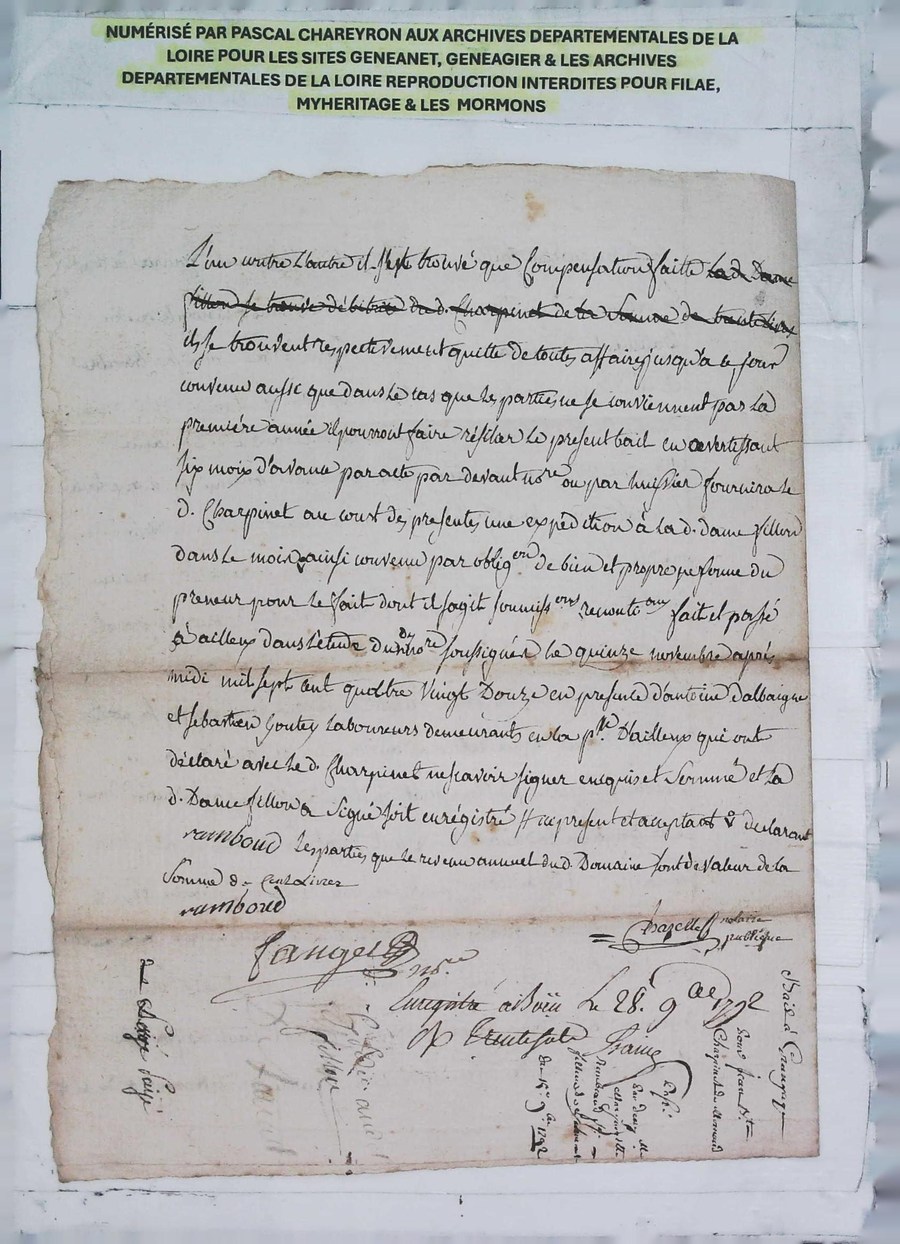 NUMÉRISÉ PAR PASCAL CHAREYRON AUX ARCHIVES DEPARTEMENTALES DE LA
LOIRE POUR LES SITES GENEANET, GENEAGIER & LES ARCHIVES
DEPARTEMENTALES DE LA LOIRE REPRODUCTION INTERDITES POUR FILAE,
MYHERITAGE & LES MORMONS
L'un contre l'autre il s'est trouvé que Compensation faitte la d. Dame
fillon se trouve débitrice du d. Charpinet de la Somme de trente livres
ils se trouvent respectivement quitte de toutes affaires jusqu'a ce jour
convenu aussi que dans le cas que les parties ne se conviennent par la
première année il pourront faire résilier le present bail en avertissant
six mois d'avance par acte par devant nore ou par huissier fournira le
d. Charpinet au court des presentes une expédition à la d. dame fillon
dans le mois ainsi convenu par obligon de bien et propre ferme du
preneur pour le fait dont il sagit soumissons renonçaons fait et passé
à ailleux dans l'étude du nore soussignés le quinze novembre après
midi mil sept cent quattre vingt Douze en presence d'antoine dalbaigne
et sebastien Goutey Laboureurs demeurants en la psse D'ailleux qui ont
déclaré avec le d. Charpinet ne scavoir signer enequis et Sommé et la
d. Dame fillon a Signé soit enrégistré ce present et aceptant & declarant
ramboud les parties que le revenu annuel du d. Domaine sont de valeur de la
Somme de Cent Livres
ramboud
Chazelles notaire
publique
nore
Enregistré a Boën Le 28. 9bre 1792
Rp Trente sols
fillon
du 15e 9bre 1792
Jean Bte
Charpinet